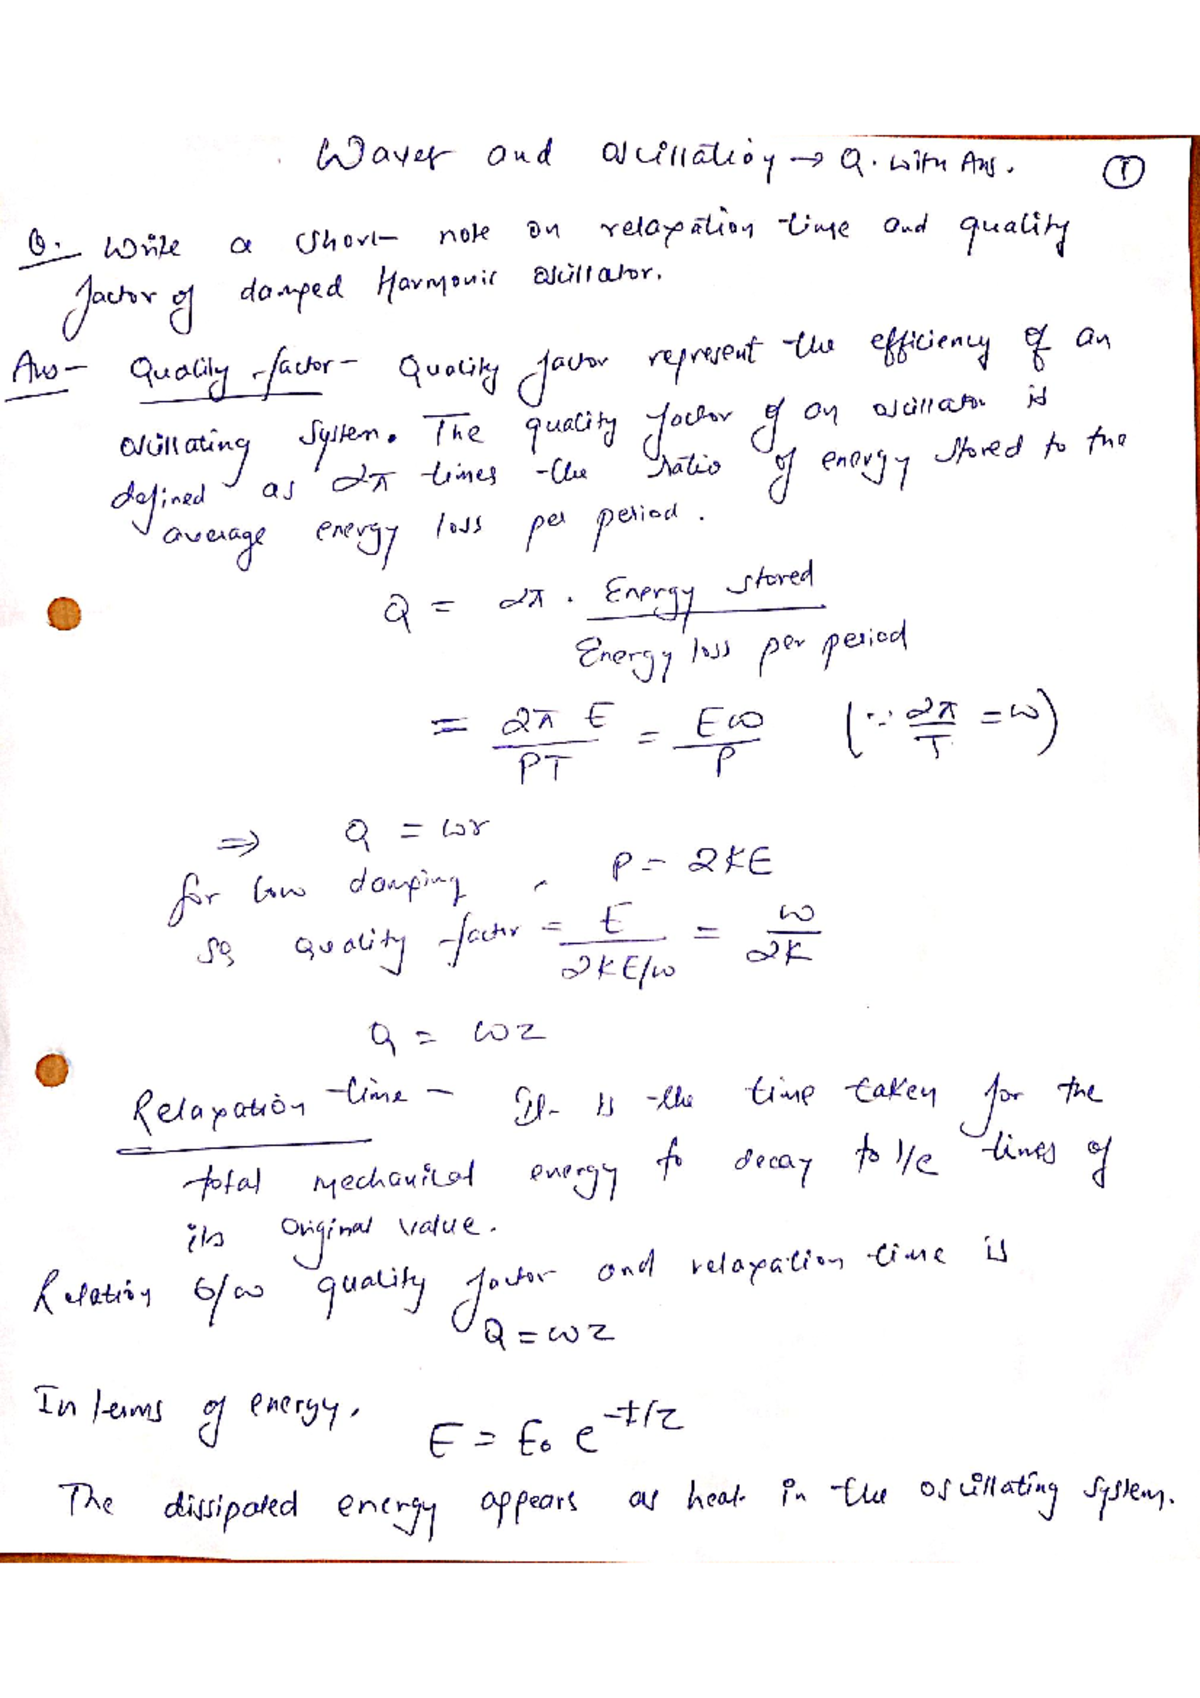 Waves and oscillation → Q. with Ans. ①
Q. Write a short note on relaxation time and quality
factor of damped Harmonic oscillator.
Ans- Quality factor - Quality factor represent the efficiency of an
oscillating system. The quality factor of an oscillator is
defined as 2π times the ratio of energy stored to the
average energy loss per period.
Q = 2π . Energy stored
Energy loss per period
= 2π E / PT = Eω / P (∵ 2π/T = ω)
⇒ Q = ωr
for low damping, P = 2KE
so, quality factor = E / 2KE/ω = ω / 2K
Q = ωz
Relaxation time - It is the time taken for the
total mechanical energy to decay to 1/e times of
its original value.
Relation b/w quality factor and relaxation time is
Q = ωz
In terms of energy,
E = E₀ e^-t/z
The dissipated energy appears as heat in the oscillating system.